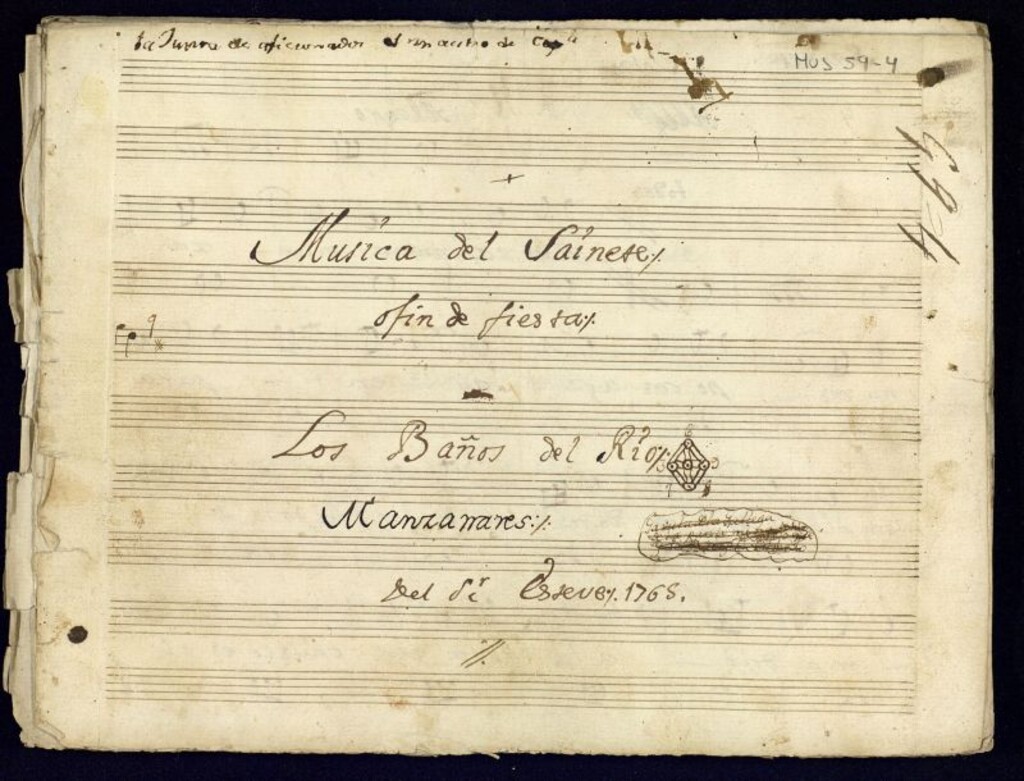 la Junta de aficionados el maestro de Capla
MUS 59-4
Musica del Sainete,/.
ofin de fiesta:/.
Los Baños del Rio/.
Manzanares:/.
Del Sr. Esteve/. 1765.